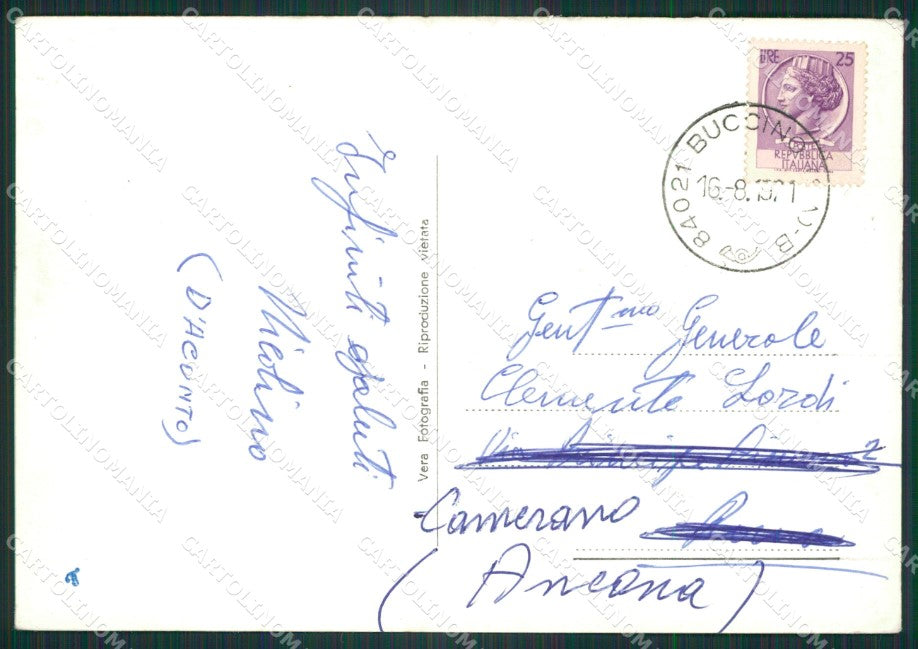 Infiniti saluti
Nicolino
(DACUNTO)
Vera Fotografia - Riproduzione vietata
LIRE 25
REPVBBLICA
ITALIANA
84021 BUCCINO
16.-8.1971
Gent.mo Generale
Clemente Lordi
Via
Camerano
(Ancona)
CARTOLINOMANIA